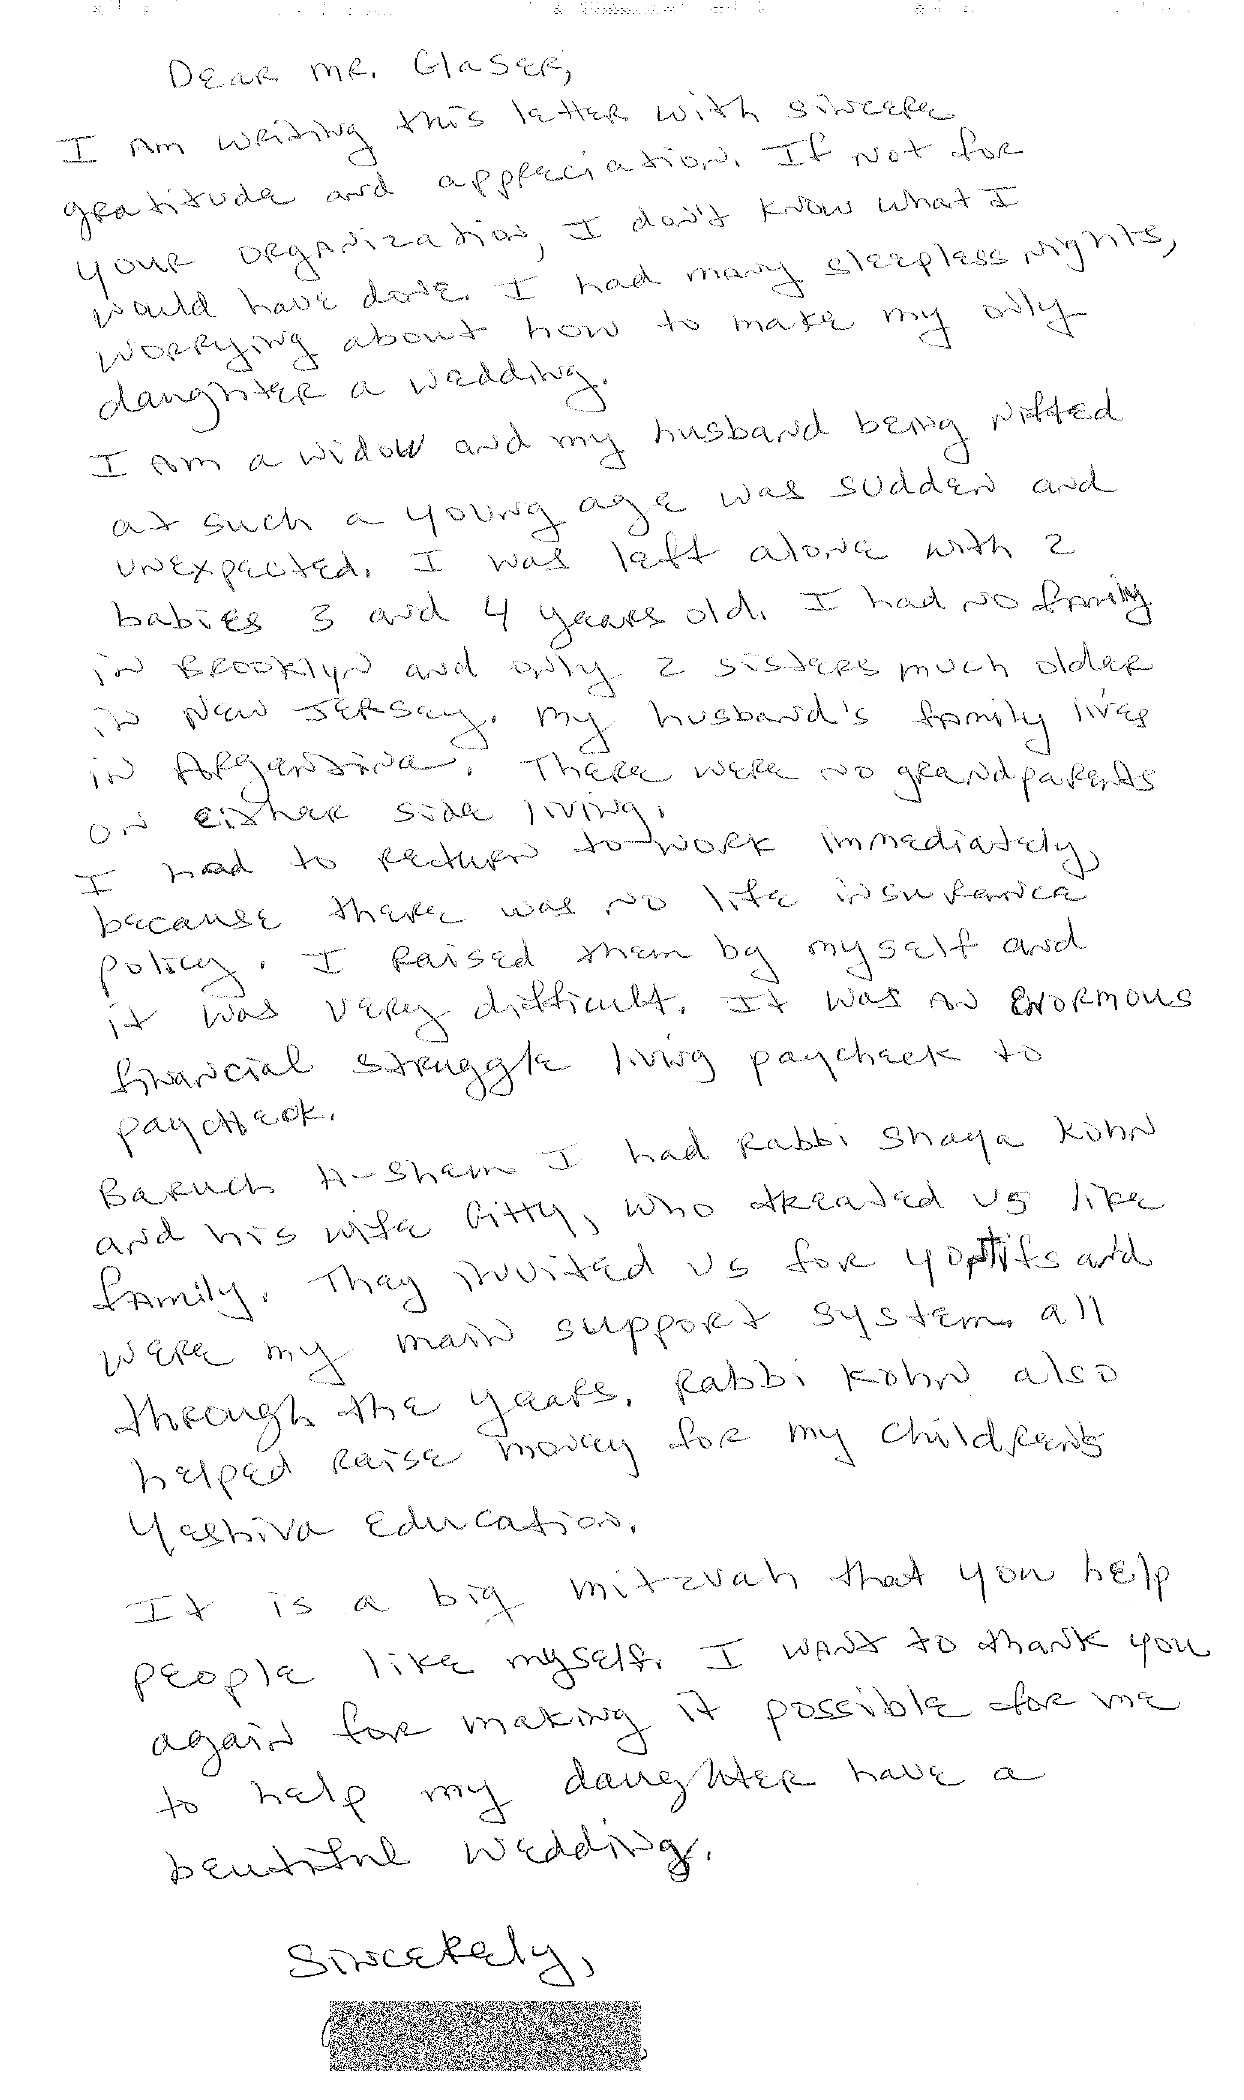 Dear Mr. Glaser,
I am writing this letter with sincere
gratitude and appreciation. If not for
your organization, I don't know what I
would have done. I had many sleepless nights,
worrying about how to make my only
daughter a wedding.
I am a widow and my husband being nifted
at such a young age was sudden and
unexpected. I was left alone with 2
babies 3 and 4 years old. I had no family
in Brooklyn and only 2 sisters much older
in New Jersey. My husband's family lives
in Argentina. There were no grandparents
on either side living.
I had to return to work immediately,
because there was no life insurance
policy. I raised them by myself and
it was very difficult. It was an enormous
financial struggle living paycheck to
paycheck.
Baruch H-Shem I had Rabbi Shaya Kohn
and his wife Gitty, who treated us like
family. They invited us for yomtifs and
were my main support system all
through the years. Rabbi Kohn also
helped raise money for my children's
Yeshiva education.
It is a big mitzvah that you help
people like myself. I want to thank you
again for making it possible for me
to help my daughter have a
beutiful wedding.
Sincerely,